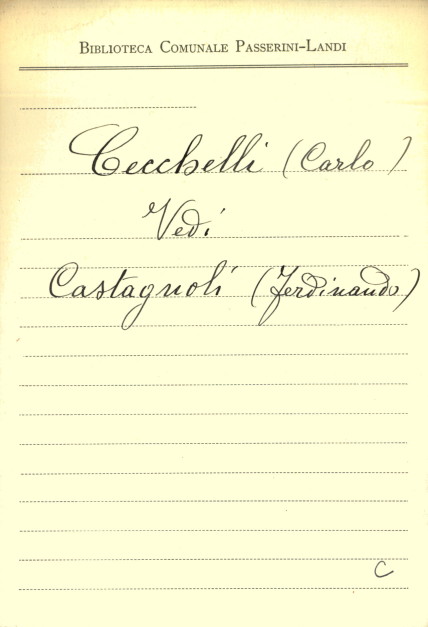 Biblioteca Comunale Passerini-Landi
Cecchelli (Carlo)
Vedi
Castagnoli (Ferdinando)
C